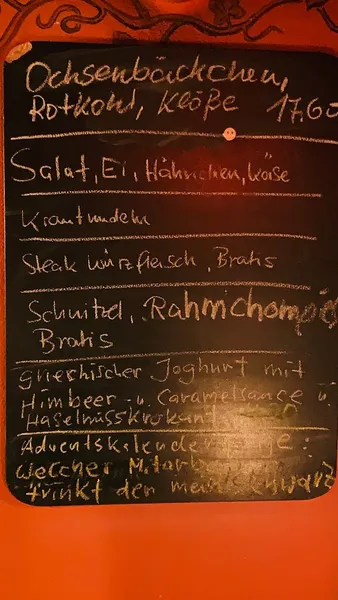 Ochsenbäckchen,
Rotkohl, Klöße 17,60
Salat, Ei, Hähnchen, Käse
Krautnudeln
Steak Würzfleisch, Bratis
Schnitzel, Rahmchampis
Bratis
Griechischer Joghurt mit
Himbeer - u. Caramelsauce u.
Haselnusskrokant
Adventskalenderfrage:
welcher Mitarb
trinkt den meisten Schwarz